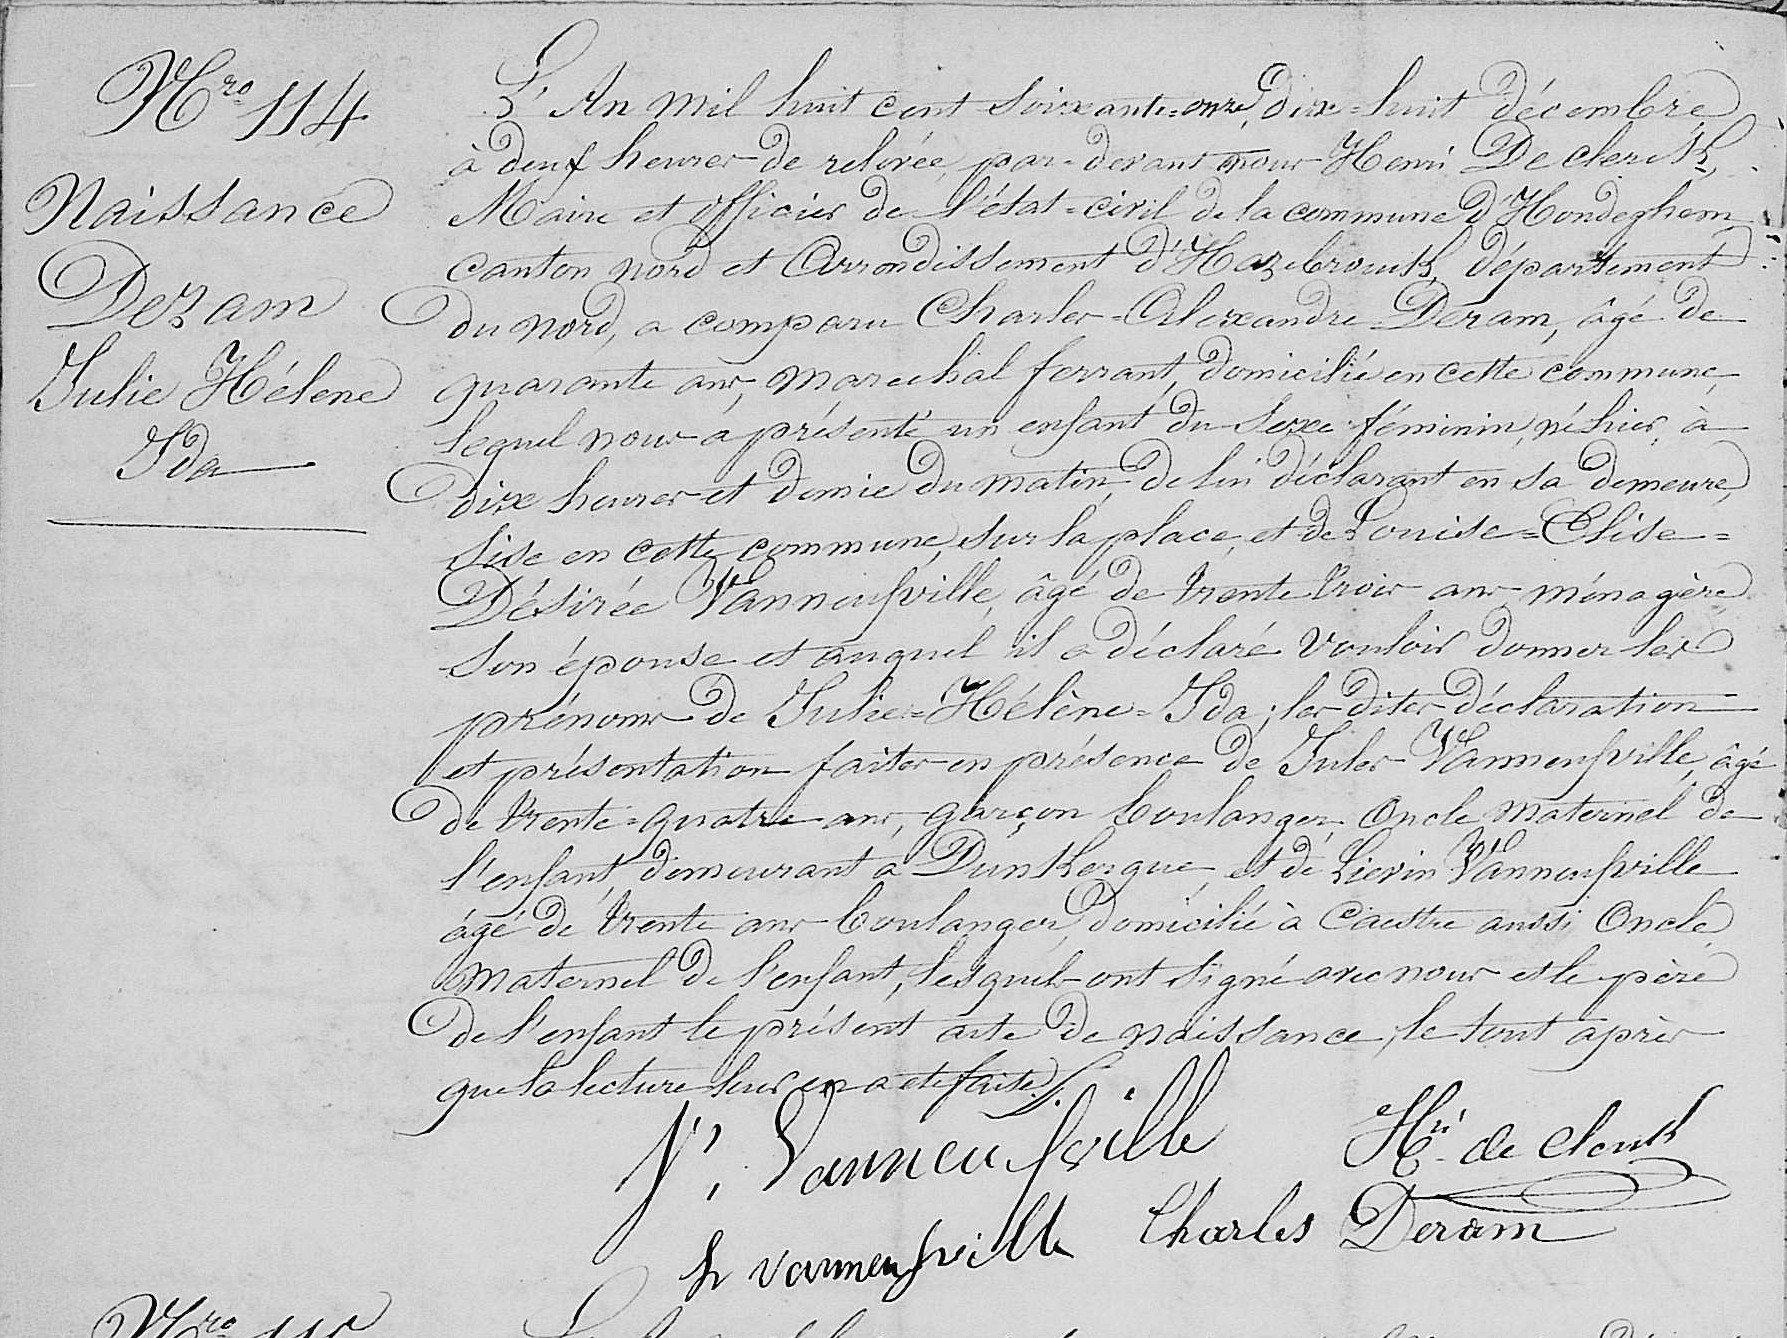 Nro 114
Naissance
Deram
Julie Hélène
Ida
L'An mil huit cent soixante=onze, dix=huit décembre
à deux heures de relevée, par-devant nous Henri De Clerck,
Maire et officier de l'état=civil de la commune d'Hondeghem
canton nord et Arrondissement d'Hazebrouck, département
du nord, a comparu Charles=Alexandre Deram, âgé de
quarante ans, marechal ferrant, domicilié en cette commune,
lequel nous a présenté un enfant du sexe féminin, né hier, à
dix heures et demie du matin, de lui déclarant en sa demeure,
sise en cette commune, sur la place, et de Louise=Elise=
Désirée Vanneufville, âgé de trente trois ans ménagère
son épouse et auquel il a déclaré vouloir donner les
prénoms de Julie=Hélène=Ida; les dites déclaration
et présentation faites en présence de Jules Vanneufville, âgé
de trente=quatre ans, garçon boulanger, Oncle maternel de
l'enfant, demeurant à Dunkerque, et de Lievin Vanneufville
âgé de trente ans boulanger, domicilié à Caestre aussi Oncle
maternel de l'enfant, lesquels ont signé avec nous et le père
de l'enfant le présent acte de naissance, le tout après
que la lecture leur en a été faite./.
J. Vanneufville
Hri de Clerck
Charles Deram
L vanneufville
Nro 115